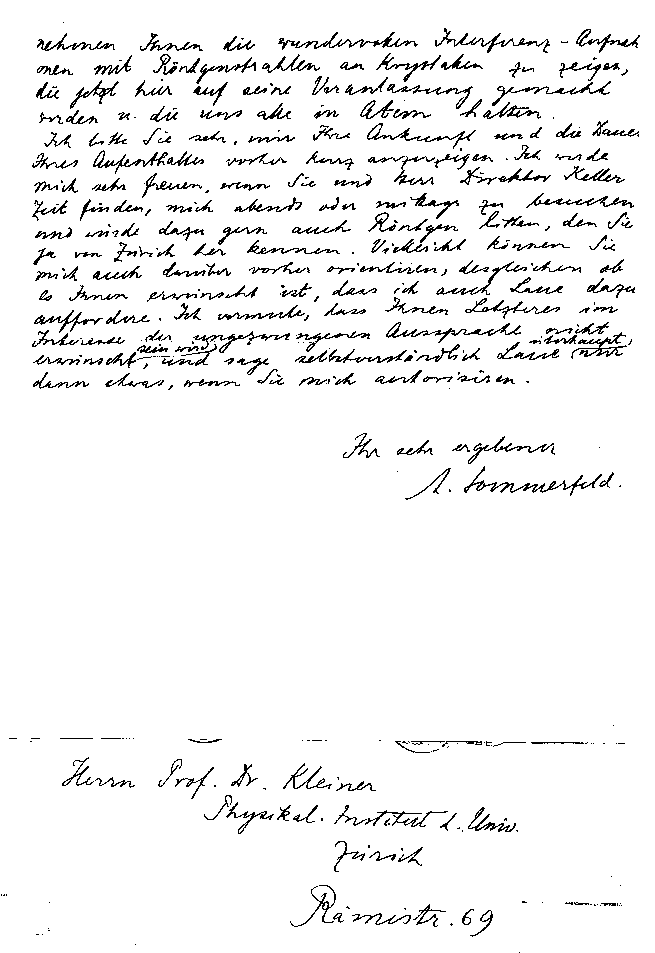 nehmen Ihnen die wundervollen Interferenz-Aufnah
men mit Röntgenstrahlen an Krystallen zu zeigen,
die jetzt hier auf seine Veranlassung gemacht
worden u. die uns alle in Atem halten.
Ich bitte Sie sehr, mir Ihre Ankunft und die Dauer
Ihres Aufenthaltes vorher kurz anzuzeigen. Ich würde
mich sehr freuen, wenn Sie und Herr Direktor Keller
Zeit finden, mich abends oder mittags zu besuchen
und würde dazu gern auch Röntgen bitten, den Sie
ja von Zürich her kennen. Vielleicht können Sie
mich auch darüber vorher orientiren, desgleichen ob
es Ihnen erwünscht ist, dass ich auch Laue dazu
auffordere. Ich vermute, dass Ihnen Letzteres im
Interesse der ungezwungenen Aussprache nicht
erwünscht sein wird, und sage selbstverständlich Laue überhaupt nur
dann etwas, wenn Sie mich autorisiren.
Ihr sehr ergebener
A. Sommerfeld.
Herrn Prof. Dr. Kleiner
Physikal. Institut d. Univ.
Zürich
Rämistr. 69